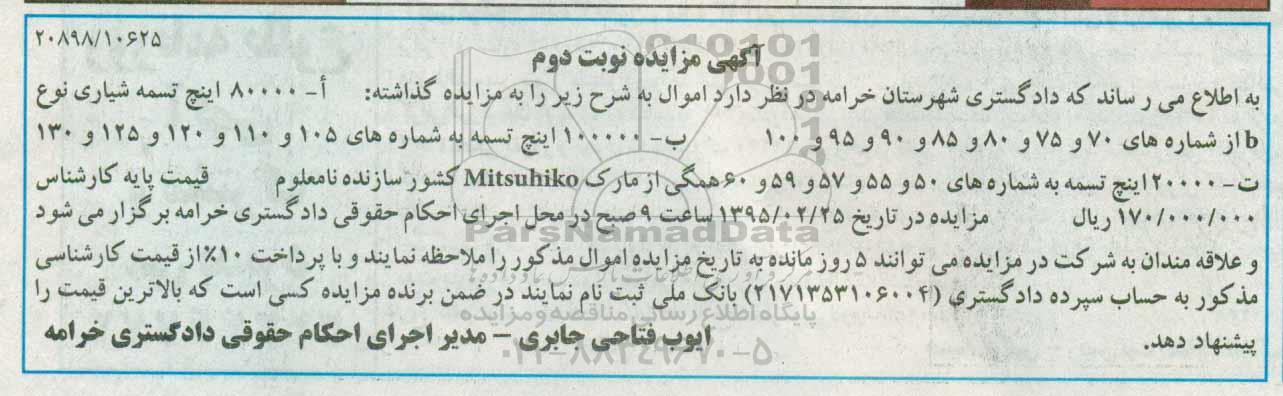 ۲۰۸۹۸/۱۰۶۲۵
آگهی مزایده نوبت دوم
به اطلاع می ر ساند که دادگستری شهرستان خرامه در نظر دارد اموال به شرح زیر را به مزایده گذاشته: أ- ۸۰۰۰۰ اینچ تسمه شیاری نوع
b از شماره های ۷۰ و ۷۵ و ۸۰ و ۸۵ و ۹۰ و ۹۵ و ۱۰۰ ب- ۱۰۰۰۰۰ اینچ تسمه به شماره های ۱۰۵ و ۱۱۰ و ۱۲۰ و ۱۲۵ و ۱۳۰
ت- ۲۰۰۰۰ اینچ تسمه به شماره های ۵۰ و ۵۵ و ۵۷ و ۵۹ و ۶۰ همگی از مارک Mitsuhiko کشور سازنده نامعلوم قیمت پایه کارشناس
۱۷۰/۰۰۰/۰۰۰ ریال مزایده در تاریخ ۱۳۹۵/۰۲/۲۵ ساعت ۹ صبح در محل اجرای احکام حقوقی دادگستری خرامه برگزار می شود
و علاقه مندان به شرکت در مزایده می توانند ۵ روز مانده به تاریخ مزایده اموال مذکور را ملاحظه نمایند و با پرداخت ۱۰٪ از قیمت کارشناسی
مذکور به حساب سپرده دادگستری (۲۱۷۱۳۵۳۱۰۶۰۰۴) بانک ملی ثبت نام نمایند در ضمن برنده مزایده کسی است که بالاترین قیمت را
پیشنهاد دهد.
ایوب فتاحی جابری – مدیر اجرای احکام حقوقی دادگستری خرامه
ParsNamadData
پایگاه اطلاع رسانی مناقصه و مزایده
۰۲۱-۸۸۳۴۹۶۷۰-۵